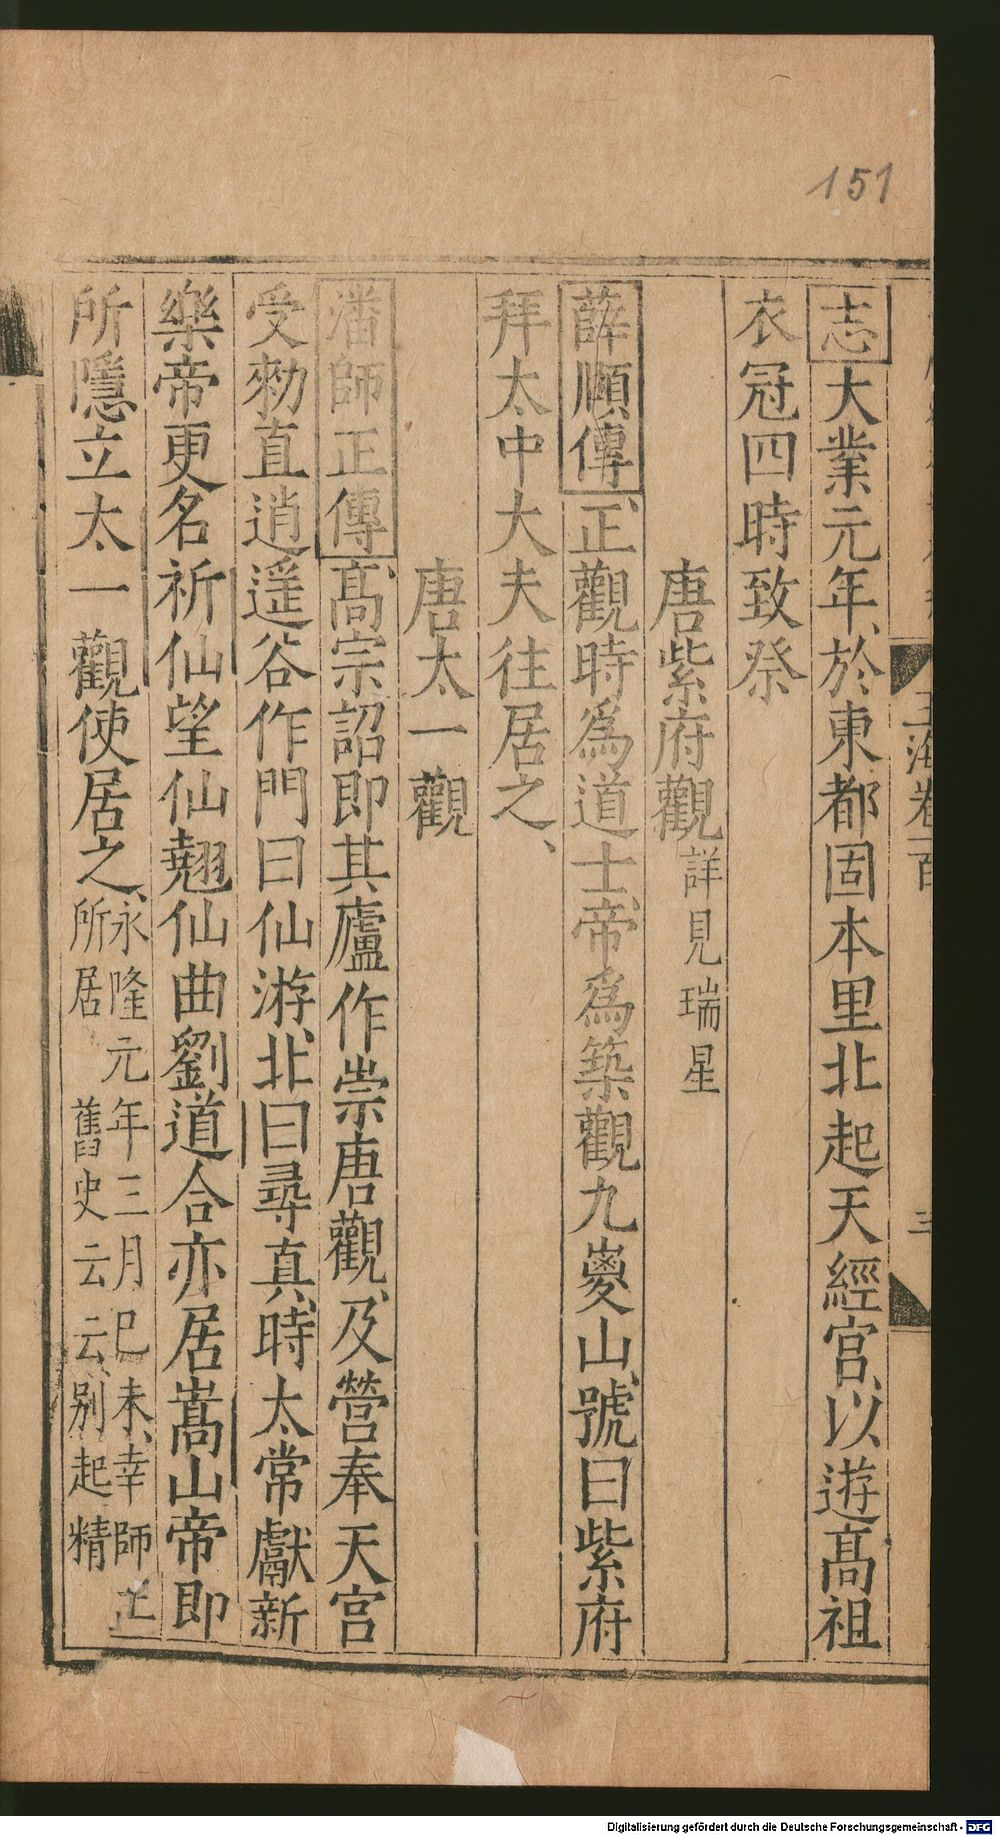 151
志大業元年、於東都固本里北起天經宮、以遊高祖
衣冠四時致祭
唐紫府觀詳見瑞星
薛頥傳、正觀時爲道士、帝爲築觀九嵏山、號曰紫府
拜太中大夫往居之、
唐太一觀
潘師正傳、高宗詔即其廬作崇唐觀、及營奉天宮
受勑直逍遥谷作門曰仙游、北曰尋真、時太常獻新
樂帝更名祈仙望仙翹仙曲劉道合亦居嵩山帝即
所隱立太一觀使居之、永隆元年三月己未、幸師正
所居 舊史云云、別起精
玉海卷百
Digitalisierung gefördert durch die Deutsche Forschungsgemeinschaft - DFG